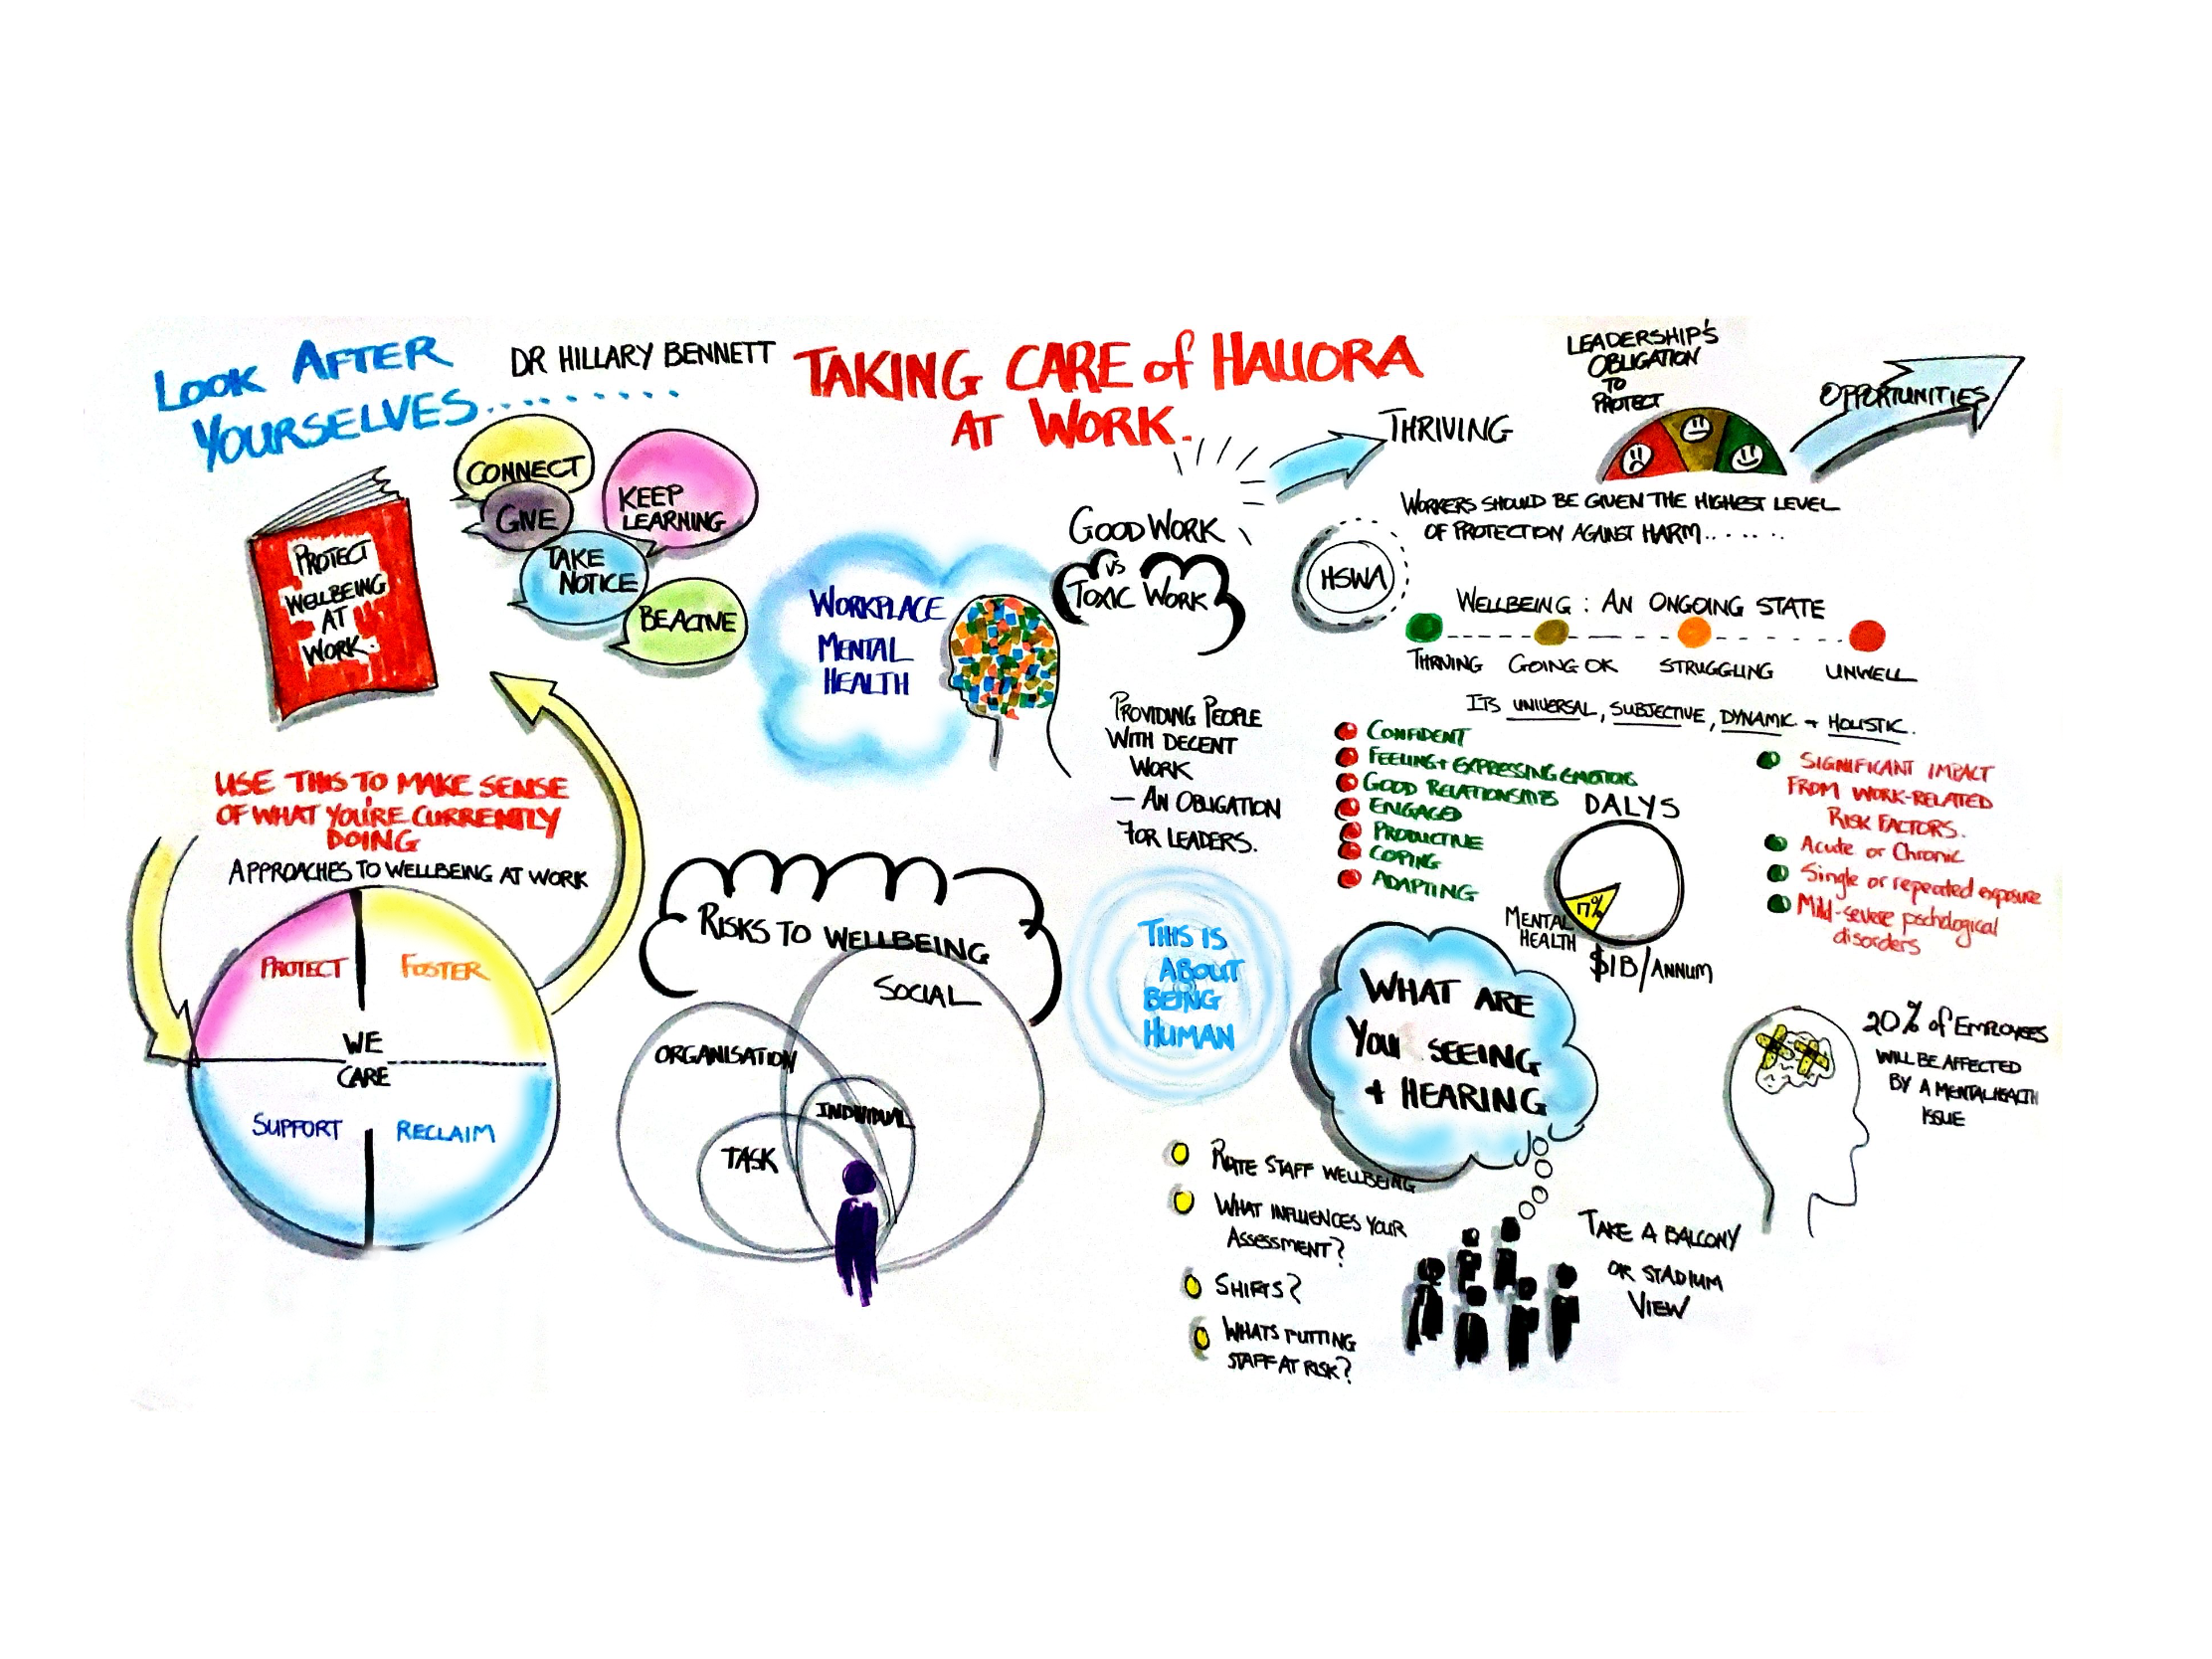 LOOK AFTER
YOURSELVES.........
DR HILLARY BENNETT
TAKING CARE of HAUORA
AT WORK.
CONNECT
GIVE
KEEP
LEARNING
TAKE
NOTICE
BE ACTIVE
PROTECT
WELLBEING
AT
WORK.
USE THIS TO MAKE SENSE
OF WHAT YOU'RE CURRENTLY
DOING
APPROACHES TO WELLBEING AT WORK
PROTECT
FOSTER
WE
CARE
SUPPORT
RECLAIM
WORKPLACE
MENTAL
HEALTH
GOOD WORK
VS
TOXIC WORK
THRIVING
PROVIDING PEOPLE
WITH DECENT
WORK
— AN OBLIGATION
FOR LEADERS.
RISKS TO WELLBEING
SOCIAL
ORGANISATION
INDIVIDUAL
TASK
THIS IS
ABOUT
BEING
HUMAN
LEADERSHIP'S
OBLIGATION
TO
PROTECT
OPPORTUNITIES
WORKERS SHOULD BE GIVEN THE HIGHEST LEVEL
OF PROTECTION AGAINST HARM......
HSWA
WELLBEING : AN ONGOING STATE
THRIVING
GOING OK
STRUGGLING
UNWELL
ITS UNIVERSAL, SUBJECTIVE, DYNAMIC + HOLISTIC.
CONFIDENT
FEELING + EXPRESSING EMOTIONS
GOOD RELATIONSHIPS
ENGAGED
PRODUCTIVE
COPING
ADAPTING
DALYS
17%
MENTAL
HEALTH
$1B/ANNUM
SIGNIFICANT IMPACT
FROM WORK-RELATED
RISK FACTORS.
Acute or Chronic
Single or repeated exposure
Mild-severe pschological
disorders
WHAT ARE
YOU SEEING
+ HEARING
RATE STAFF WELLBEING
WHAT INFLUENCES YOUR
ASSESSMENT?
SHIFTS?
WHATS PUTTING
STAFF AT RISK?
TAKE A BALCONY
OR STADIUM
VIEW
20% of EMPLOYEES
WILL BE AFFECTED
BY A MENTAL HEALTH
ISSUE